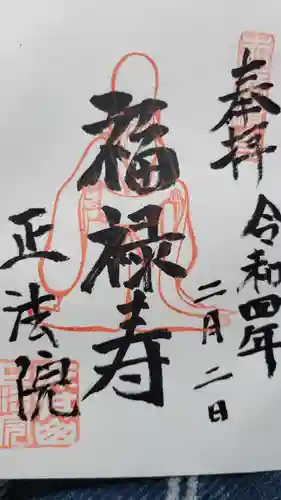 奉拝
令和四年
二月二日
福禄寿
正法院